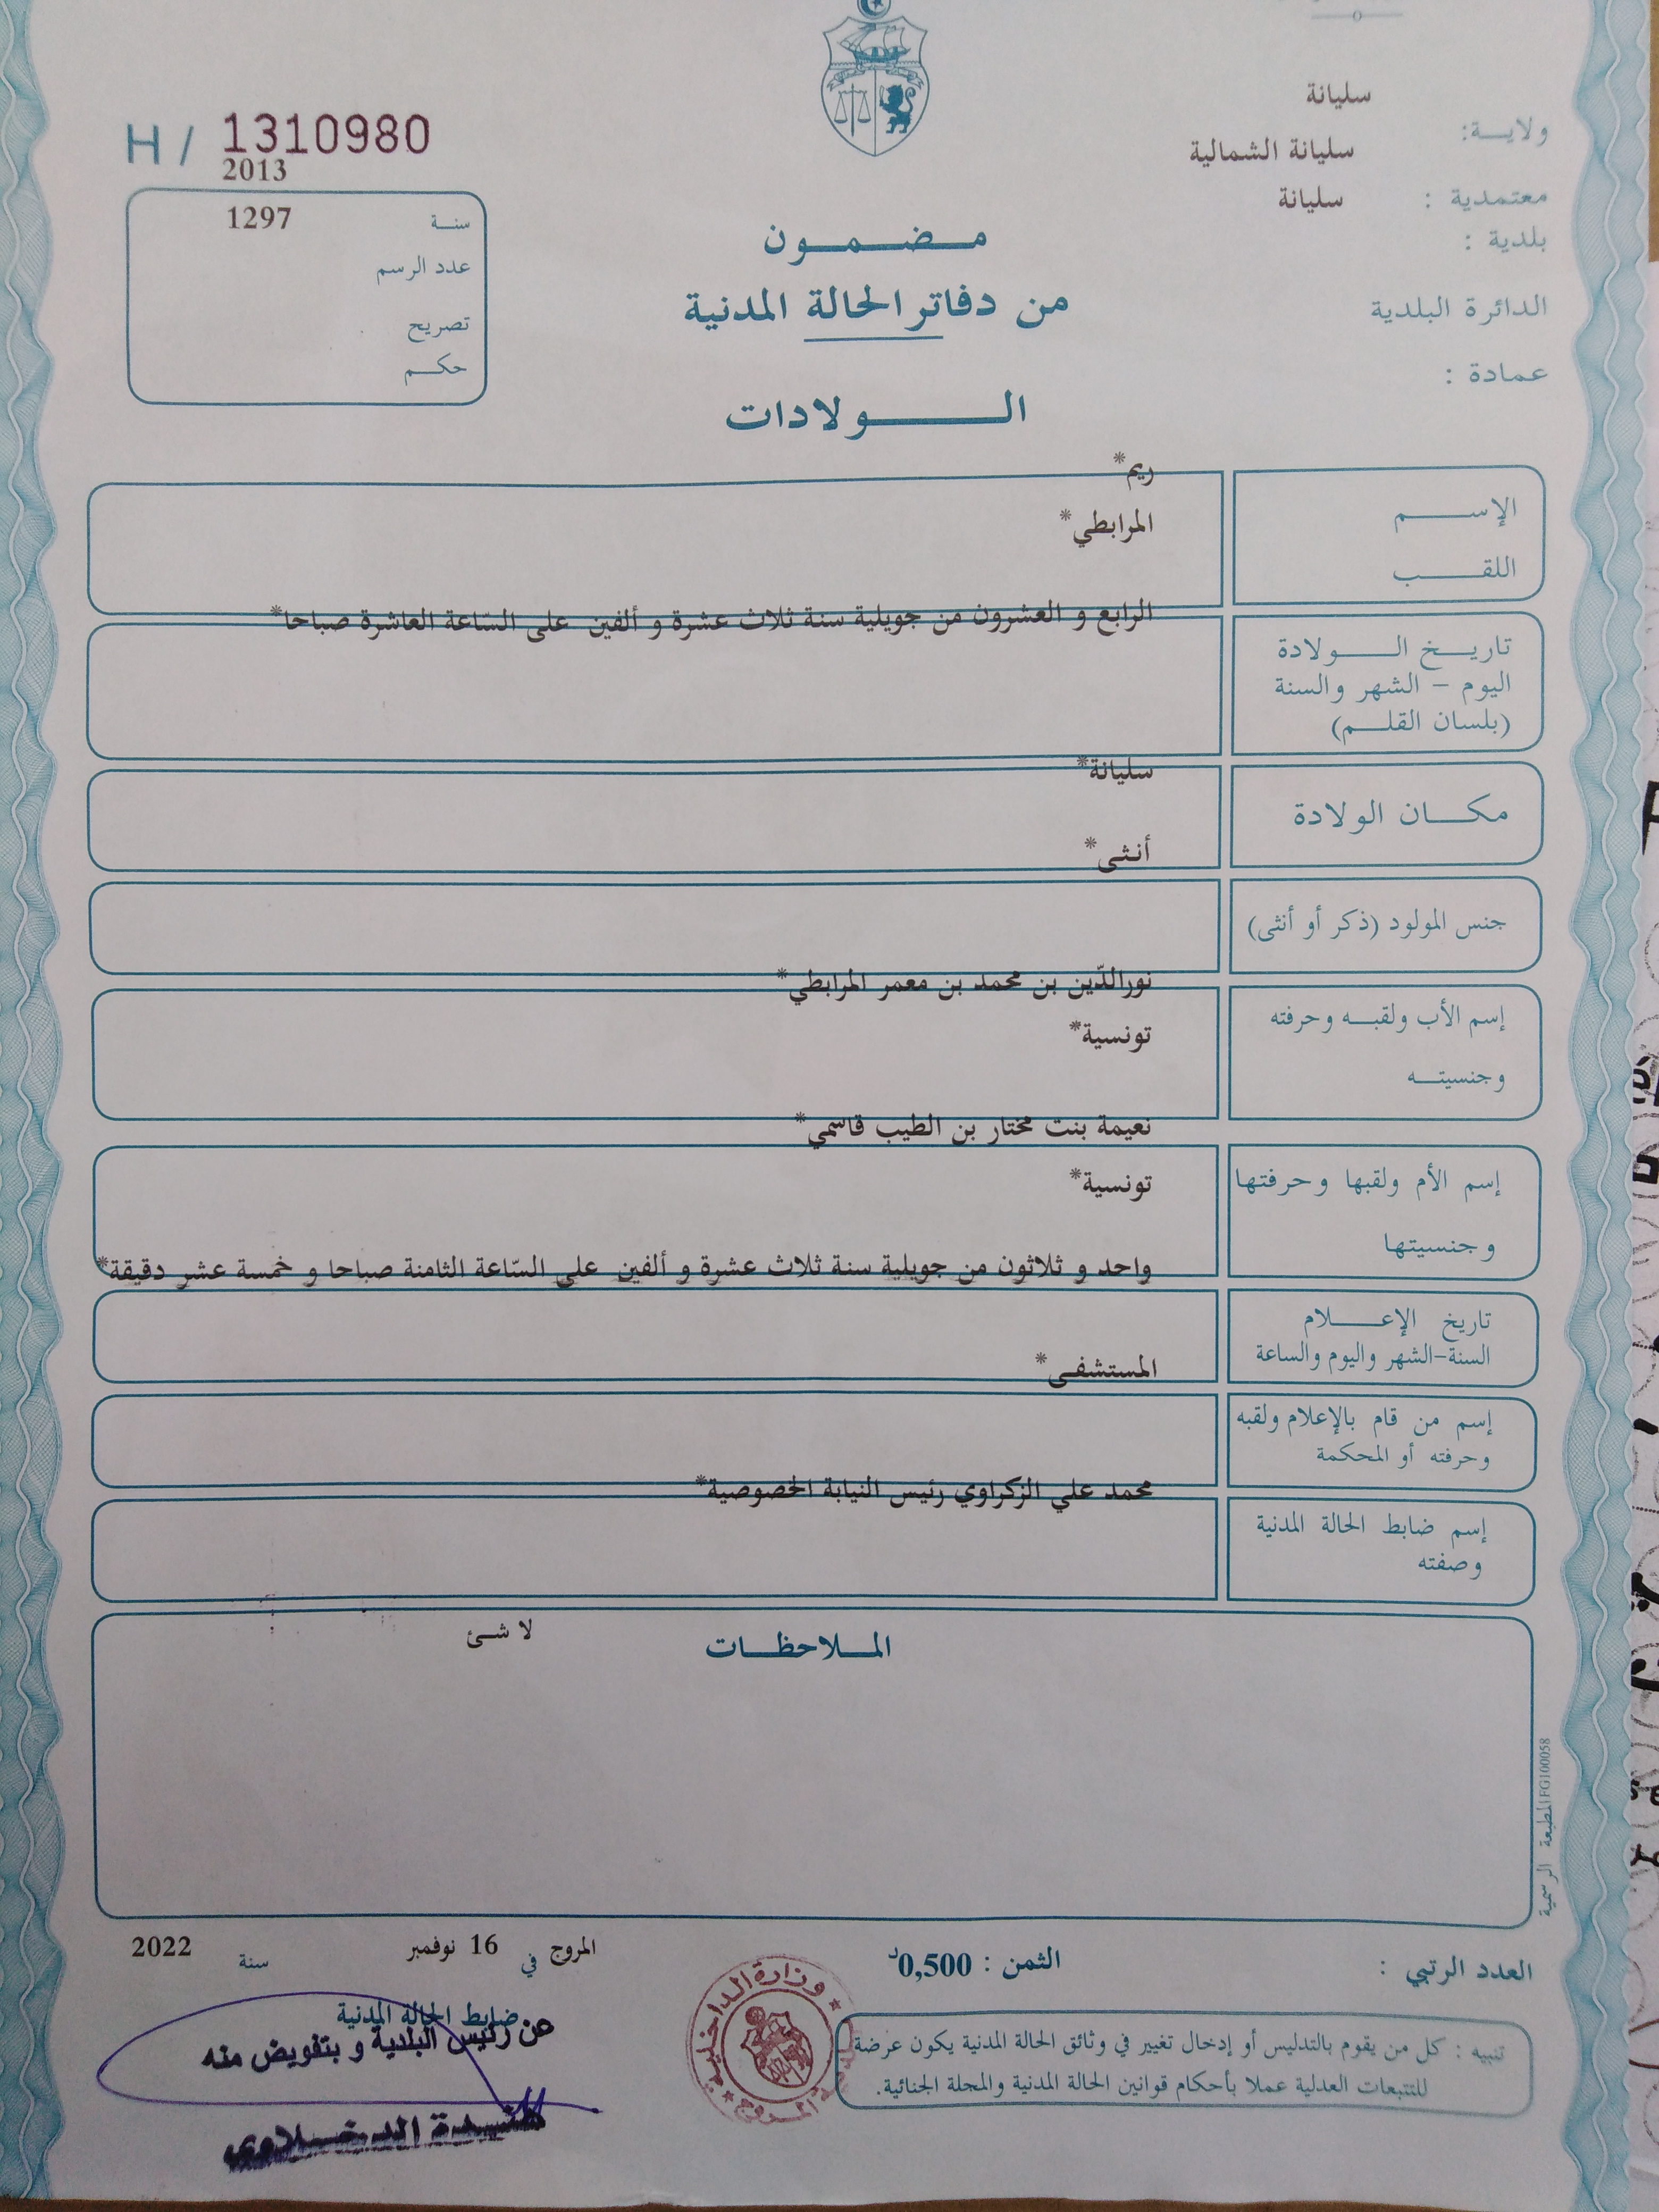 H / 1310980
2013
سنة 1297
عدد الرسم
تصريح
حكم
سليانة
ولاية:
سليانة الشمالية
معتمدية : سليانة
بلدية :
الدائرة البلدية
عمادة :
مضمون
من دفاتر الحالة المدنية
الولادات
ريم*
الإسم
المرابطي*
اللقب
الرابع و العشرون من جويلية سنة ثلاث عشرة و ألفين على السّاعة العاشرة صباحا*
تاريخ الولادة
اليوم – الشهر والسنة
(بلسان القلم)
سليانة*
مكان الولادة
أنثى*
جنس المولود (ذكر أو أنثى)
نورالدّين بن محمد بن معمر المرابطي*
إسم الأب ولقبه وحرفته
تونسية*
وجنسيته
نعيمة بنت مختار بن الطيب قاسمي*
إسم الأم ولقبها وحرفتها
تونسية*
وجنسيتها
واحد و ثلاثون من جويلية سنة ثلاث عشرة و ألفين على السّاعة الثامنة صباحا و خمسة عشر دقيقة*
تاريخ الإعلام
السنة-الشهر واليوم والساعة
المستشفى*
إسم من قام بالإعلام ولقبه
وحرفته أو المحكمة
محمد علي الزكراوي رئيس النيابة الخصوصية*
إسم ضابط الحالة المدنية
وصفته
الملاحظات
لا شئ
المطبعة الرسمية FG100058
العدد الرتبي :
الثمن : 0,500د
المروج في 16 نوفمبر سنة 2022
ضابط الحالة المدنية
عن رئيس البلدية و بتفويض منه
وزارة الداخلية
تنبيه : كل من يقوم بالتدليس أو إدخال تغيير في وثائق الحالة المدنية يكون عرضة
للتتبعات العدلية عملا بأحكام قوانين الحالة المدنية والمجلة الجنائية.